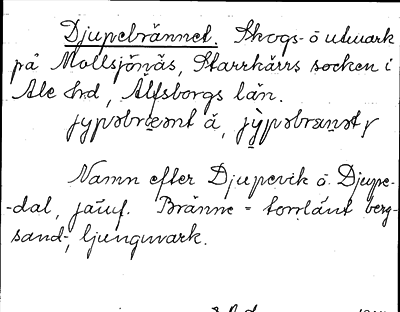 Djupebrännet. Skogs- o utmark
på Mollsjönäs, Starrkärrs socken i
Ale hd, Älfsborgs län.
jypəbræ̀nt å, jỳpəbrænət,
Namn efter Djupevik o Djupe-
-dal, jämf. Bränne = torrlänt berg-
sand-, ljungmark.